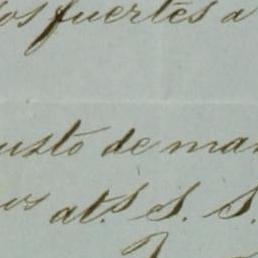 os fuertes a
usto de man
us at.s S. S.